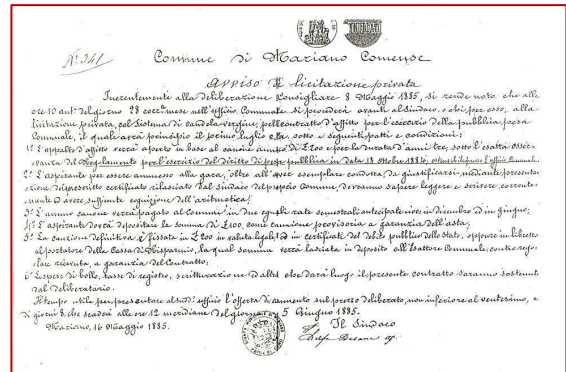 N.° 341
Comune di Mariano Comense
Avviso di licitazione privata
Inerentemente alla deliberazione Consigliare 8 Maggio 1885, si rende noto che alle
ore 10 ant.e del giorno 28 corr. mese nell'ufficio Communale si procederà avanti al Sindaco, o chi per esso, alla
licitazione privata, col sistema di candela vergine, pel contratto d'affitto per l'esercizio della pubblica pesa
Communale, il quale avrà principio il primo luglio sotto e seguenti patti e condizioni:
1° L'appalto d'affitto verrà aperto in base al canone annuo di £200 e per la durata d'anni tre, sotto l'esatta osser-
vanza del Regolamento per l'esercizio del diritto di peso pubblico in data 13 Ottobre 1884, l'ufficio Comunale
2° L'aspirante per essere ammesso alla gara, oltre all'aver esemplare condotta, da giustificarsi mediante presenta-
zione del prescritto certificato rilasciato dal sindaco del proprio Comune, dovranno sapere leggere e scrivere corrente-
mente ed avere sufficiente cognizione dell'aritmetica;
3° L'annuo canone verrà pagato al Comune in due eguali rate semestrali anticipate cioè in dicembre ed in giugno;
4° L'aspirante dovrà depositare la somma di £100, come cauzione provvisoria a garanzia dell'asta;
5° La cauzione definitiva è fissata in £200 in valuta legale, od in certificati del debito pubblico dello Stato, oppure in libretto
al portatore della Cassa di Risparmio, la qual somma verrà lasciata in deposito all'Esattore Communale, contro rego-
lare ricevuta, a garanzia del Contratto;
6° Le spese di bollo, tasse di registro, scritturazione ed altre che darà luogo il presente contratto saranno sostenute
dal deliberatario.
Il tempo utile per presentare al sud.° ufficio l'offerta di aumento sul prezzo deliberato, non inferiore al ventesimo, è
di giorni 8, che scadrà alle ore 12 meridiane del giorno 5 Giugno 1885.
Mariano, 16 Maggio 1885.
Il Sindaco